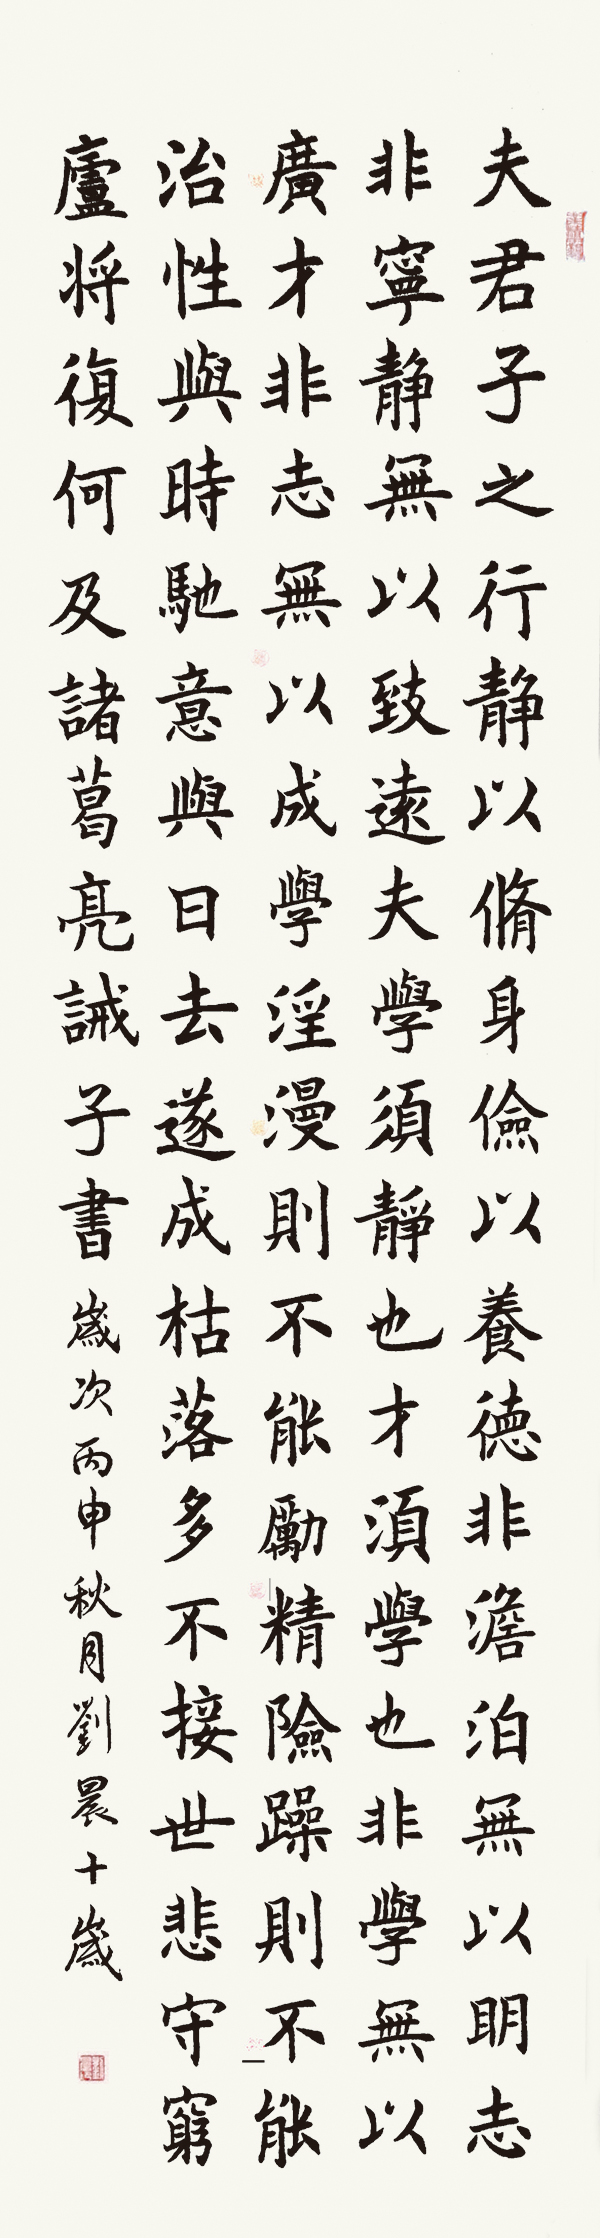 夫君子之行静以脩身儉以養德非澹泊無以明志
非寧静無以致遠夫學須靜也才須學也非學無以
廣才非志無以成學淫漫則不能勵精險躁則不能
治性與時馳意與日去遂成枯落多不接世悲守窮
廬将復何及諸葛亮誡子書歲次丙申秋月劉晨十歲